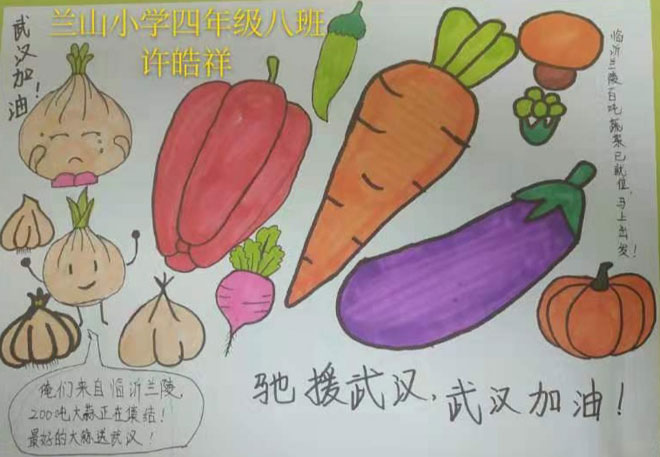 兰山小学四年级八班
许皓祥
武汉加油！
临沂兰陵百吨蔬菜已就位，马上出发！
俺们来自临沂兰陵，
200吨大蒜正在集结！
最好的大蒜送武汉！
驰援武汉，武汉加油！